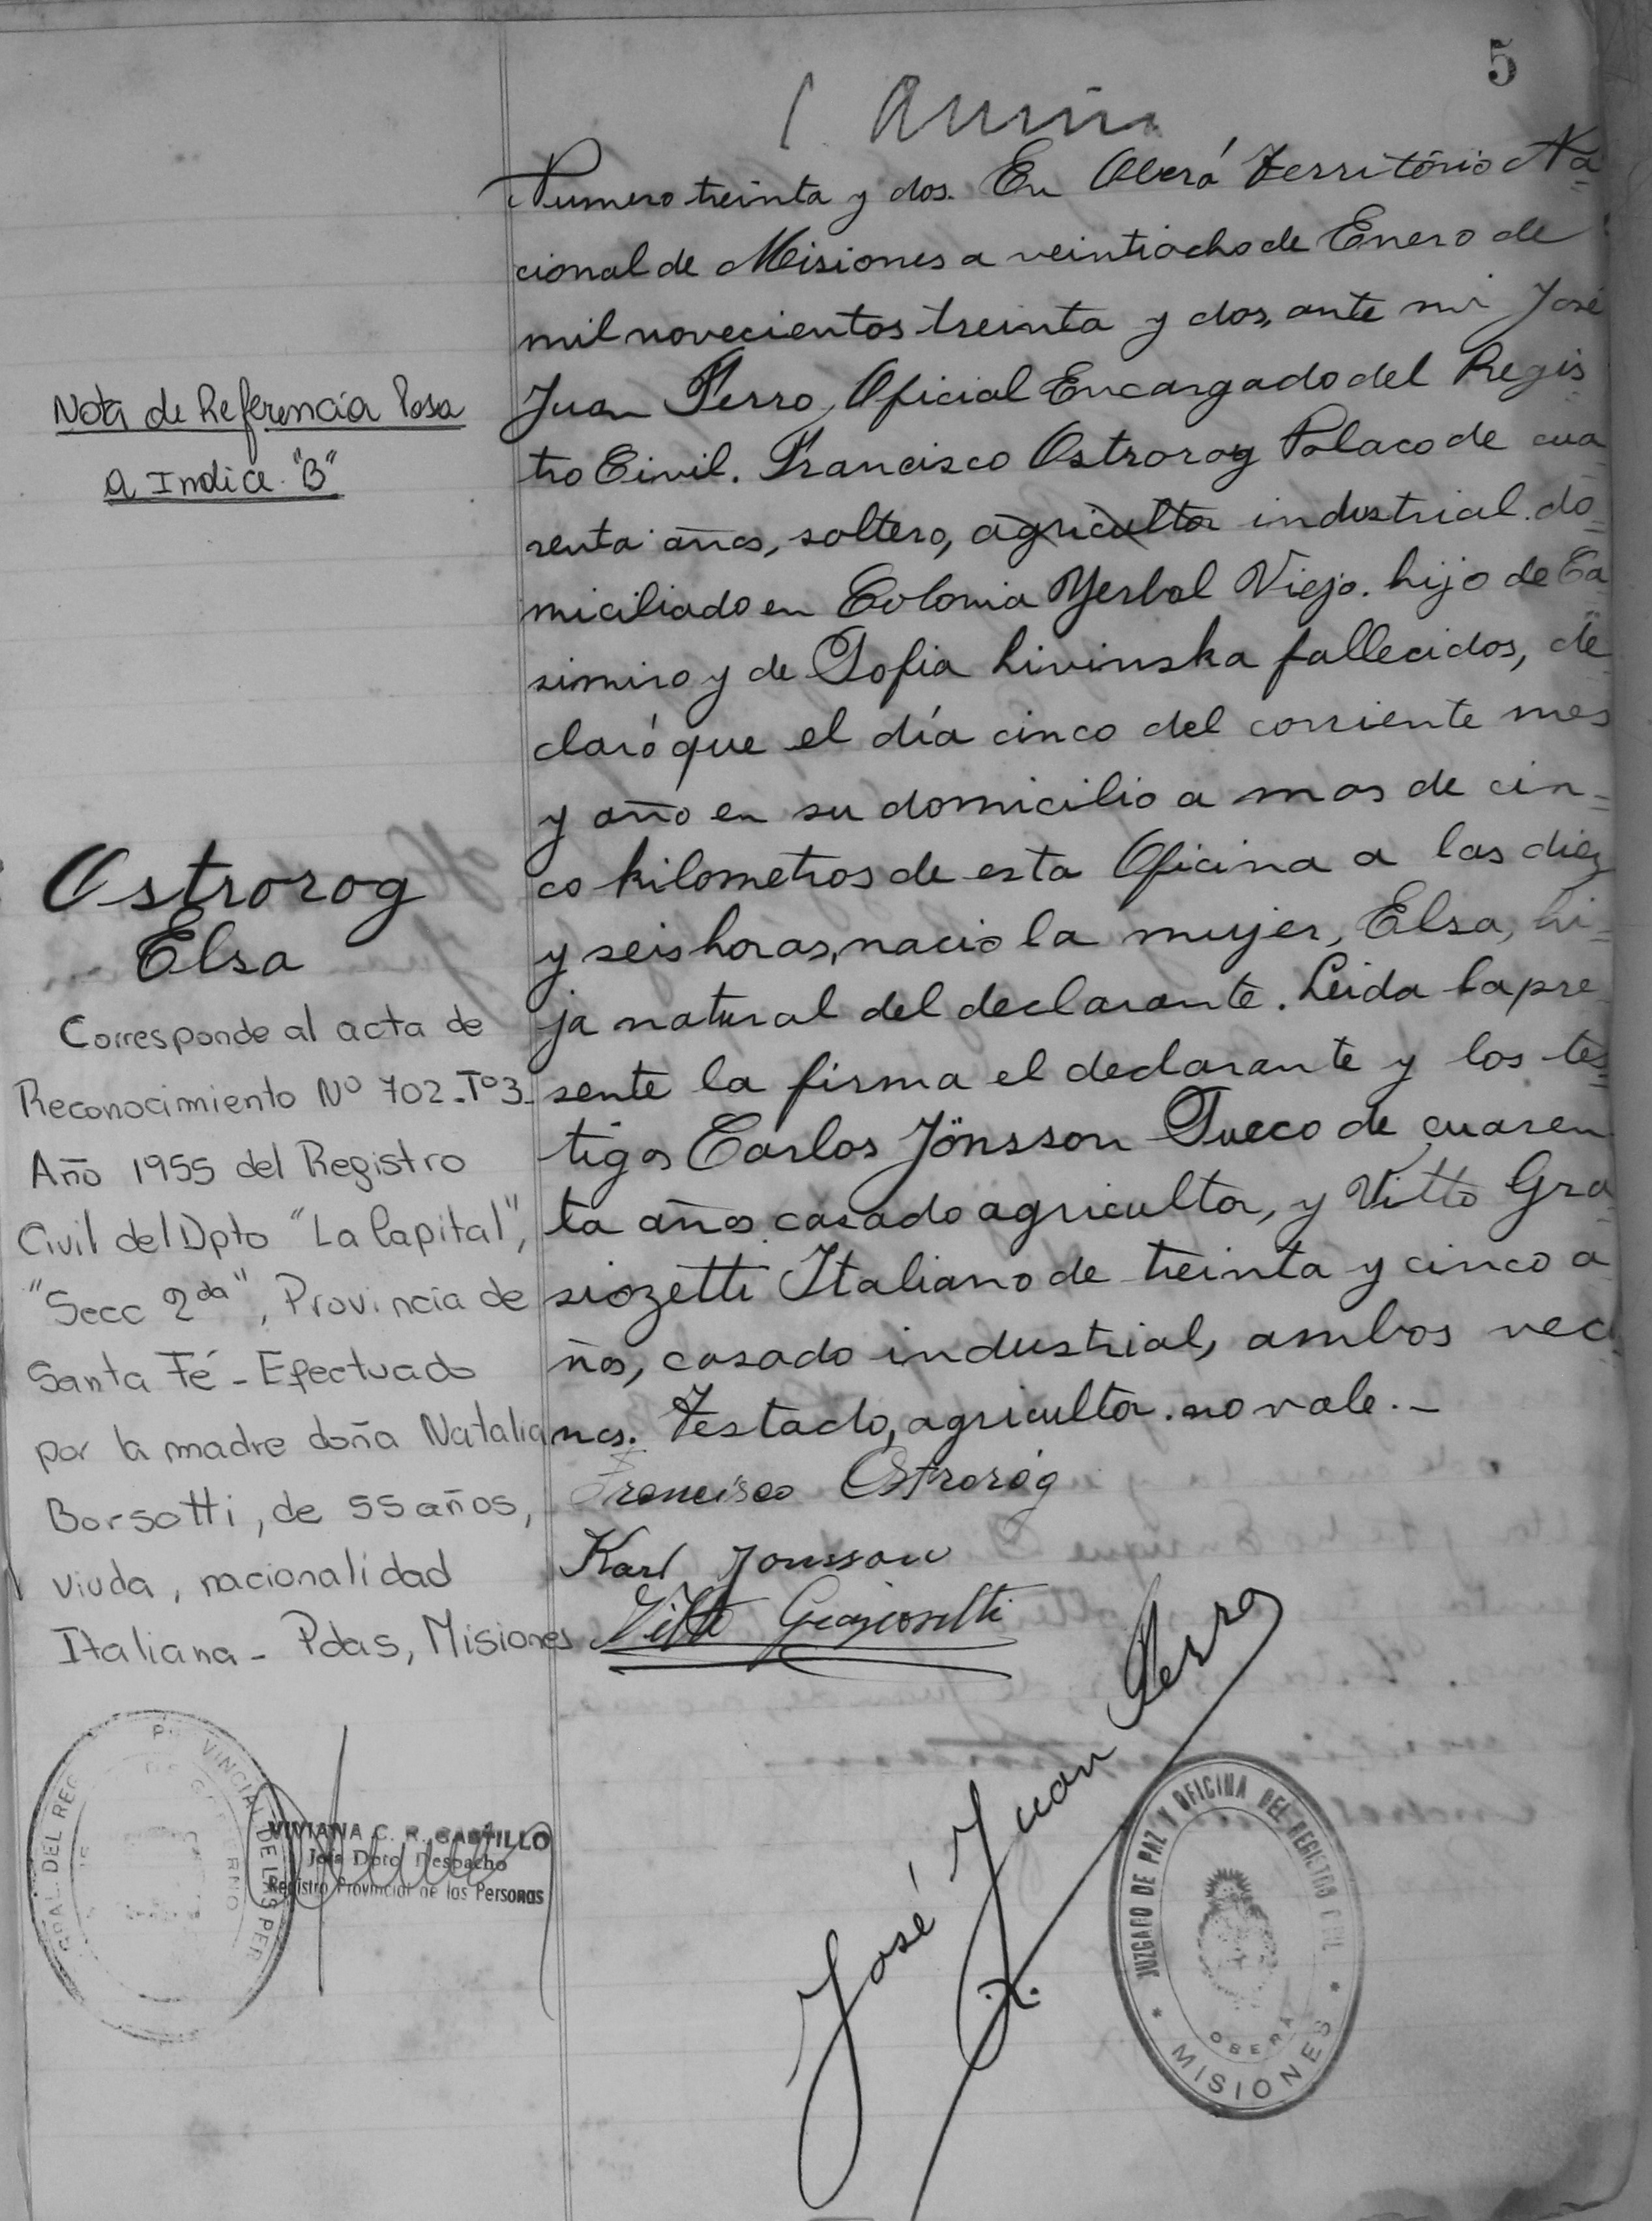 5
Numero treinta y dos. En Oberá Territorio Na=
cional de Misiones a veintiocho de Enero de
mil novecientos treinta y dos, ante mi José
Juan Perro, Oficial Encargado del Regis
tro Civil. Francisco Ostrorog Polaco de cua
renta años, soltero, agricultor industrial. do=
miciliado en Colonia Yerbal Viejo. hijo de Ca
simiro y de Sofia Livinska fallecidos, de
claró que el día cinco del corriente mes
y año en su domicilio a mas de cin=
co kilometros de esta Oficina a las diez
y seis horas, nacio la mujer, Elsa, hi=
ja natural del declarante. Leida la pre
sente la firma el declarante y los tes=
tigos Carlos Jönsson Sueco de cuaren
ta años casado agricultor, y Vitto Gra
siozetti Italiano de treinta y cinco a
ños, casado industrial, ambos veci
nos. Testado, agricultor. no vale.-
Francisco Ostroróg
Karl Jonsson
José Juan Perro
JUZGADO DE PAZ Y OFICINA DEL REGISTRO CIVIL
OBERÁ
* MISIONES *
Nota de Referencia Pasa
a Indice "B"
Ostrorog
Elsa
Corresponde al acta de
Reconocimiento Nº 702-Tº3-
Año 1955 del Registro
Civil del Dpto "La Capital",
"Secc 2da", Provincia de
Santa Fé - Efectuado
por la madre doña Natalia
Borsotti, de 55 años,
viuda, nacionalidad
Italiana - Pdas, Misiones
VIVIANA C. R. CASTILLO
Jefa Dpto Despacho
Registro Provincial de las Personas